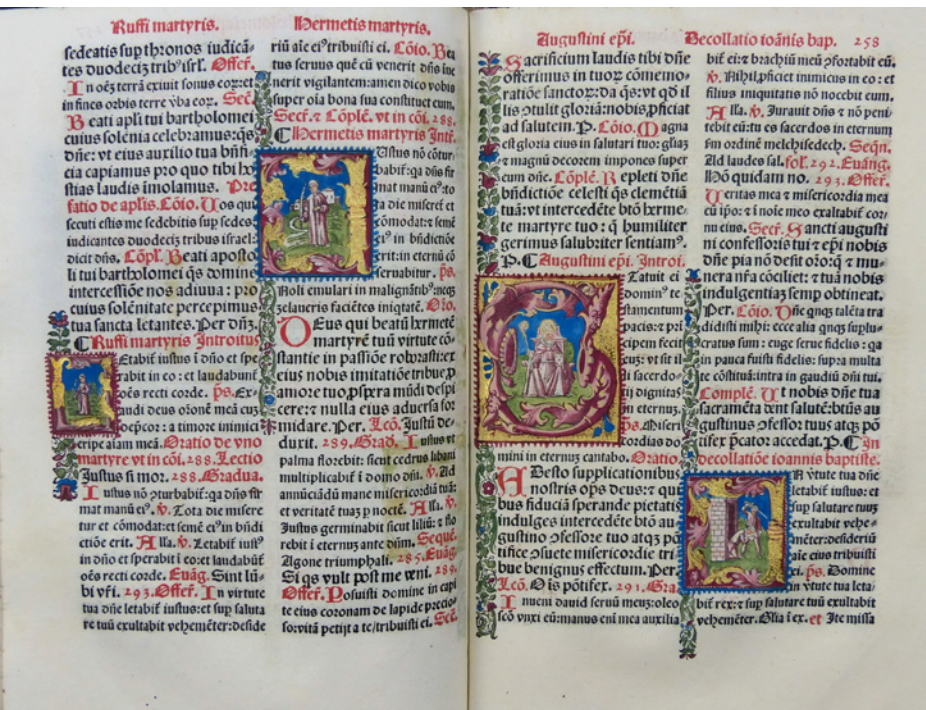 Ruffi martyris.
Hermetis martyris.
sedeatis suꝑ thronos iudicā-
tes duodeciȝ tribꝰ isrl. Offer̄.
In oēȝ terrā exiuit sonus eoꝝ: et
in fines orbis terre ꝟba eoꝝ. Sec̄.
Beati apl̄i tui bartholomei
cuius solenia celebramus: q̄s
dn̄e: vt eius auxilio tua bn̄fi-
cia capiamus pro quo tibi ho
stias laudis īmolamus. Pre
fatio de apl̄is. Cōio. Uos qui
secuti estis me sedebitis suꝑ sedes:
iudicantes duodeciȝ tribus israel:
dicit dn̄s. Cōpl̄. Beati aposto
li tui bartholomei q̄s domine
intercessiōe nos adiuua: pro
cuius solēnitate percepimus
tua sancta letantes. Per dn̄ȝ.
C Ruffi martyris Introitus
Letabit̄ iustus ī dn̄o et spe
rabit in eo: et laudabunt̄
oēs recti corde. ps̄. Ex-
audi deus orōnē meā cuȝ
deprecor: a timore inimici
eripe aīam meā. Oratio de vno
martyre vt in cōi. 288. Lectio
Justus si mor. 288. Gradua.
Iustus nō ꝯturbabit̄: qa dn̄s fir
mat manū eiꝰ. ℣. Tota die misere
tur et cōmodat: et semē eiꝰ in bn̄di
ctiōe erit. Alla. ℣. Letabit̄ iustꝰ
in dn̄o et sperabit ī eo: et laudabūt̄
oēs recti corde. Euāg. Sint lū-
bi vr̄i. 293. Offer̄. In virtute
tua dn̄e letabit̄ iustus: et suꝑ saluta
re tuū exultabit vehemēter: deside
riū aīe eiꝰ tribuisti ei. Cōio. Bea
tus seruus quē cū venerit dn̄s īue
nerit vigilantem: amen dico vobis
super oīa bona sua constituet eum.
Secr̄. ⁊ Cōple. vt in cōi. 288.
C Hermetis martyris Intr̄.
Iustus nō cōtur-
babit̄: qa dn̄s fir
mat manū eiꝰ: to
ta die miseret̄ et
cōmodat: ⁊ semē
eiꝰ in bn̄dictiōe
erit: in eternū cō
seruabitur. ps̄.
Noli emulari in malignātibꝰ: neqȝ
zelaueris faciētes iniqtatē. Orō.
DEus qui beatū hermetē
martyrē tuū virtute cō-
stantie in passiōe roborasti: ex
eius nobis imitatiōe tribue ꝓ
amore tuo ꝓspera mūdi despi
cere: ⁊ nulla eius aduersa for
midare. Per. Lcō. Justū de-
duxit. 289. Grad. Iustus vt
palma florebit: sicut cedrus libani
multiplicabit̄ ī domo dn̄i. ℣. Ad
annūciādū mane misericordiā tuā:
et veritatē tuaȝ ꝑ noctē. Alla. ℣.
Justus germinabit sicut liliū: ⁊ flo
rebit ī eternuȝ ante dn̄m. Seque.
Agone triumphali. 285. Euāg.
Si qs vult post me veni. 289.
Offer̄. Posuisti domine in capi
te eius coronam de lapide precio-
so: vitā petijt a te / tribuisti ei. Sec̄.
Augustini ep̄i.
Decollatio ioānis bap. 258
Sacrificium laudis tibi dn̄e
offerimus in tuoꝝ cōmemo-
ratiōe sanctoꝝ: da q̄s: vt qd̄ il
lis ꝯtulit gloriā: nobis ꝓficiat
ad salutem. P. Cōio. Magna
est gloria eius in salutari tuo: gl̄iaȝ
⁊ magnū decorem impones super
eum dn̄e. Cōplē. Repleti dn̄e
bn̄dictiōe celesti q̄s clemētiā
tuā: vt intercedēte btō herme-
te martyre tuo: q̄ humiliter
gerimus salubriter sentiamꝰ.
P. C Augustini ep̄i. Introi.
Statuit ei
dominꝰ te
stamentum
pacis: ⁊ prī
cipem fecit
euȝ: vt sit il
li sacerdo-
tij dignitas
in eternuȝ.
ps̄. Miseri
cordias do
mini in eternuȝ cantabo. Oratio.
ADesto supplicationibus
nostris op̄s deus: ⁊ qui
bus fiduciā sperande pietatis
indulges intercedēte btō au-
gustino ꝯfessore tuo atqȝ pō
tifice ꝯsuete misericordie tri
bue benignus effectum. Per.
Lcō. Oīs pōtifex. 291. Gra.
Inueni dauid seruū meuȝ: oleo
scō vnxi eū: manus enī mea auxilia
bit̄ ei: ⁊ brachiū meū ꝯfortabit eū.
℣. Nihil ꝓficiet inimicus in eo: et
filius iniquitatis nō nocebit eum.
Alla. ℣. Jurauit dn̄s ⁊ nō peni
tebit eū: tu es sacerdos in eternum
fm ordinē melchisedech. Seqn̄.
Ad laudes sal. fol. 292. Euāng.
Hōquidam no. 293. Offer̄.
Ueritas mea ⁊ misericordia mea
cū ip̄o: ⁊ ī noīe meo exaltabit̄ cor-
nu eius. Secr̄. Sancti augusti
ni confessoris tui ⁊ ep̄i nobis
dn̄e pia nō desit oīo: q̄ ⁊ mu-
nera nr̄a cōciliet: ⁊ tuā nobis
indulgentiaȝ semꝑ obtineat.
Per. Cōio. Dn̄e qnqȝ talēta tra
didisti mihi: ecce alia qnqȝ suꝑlu-
cratus sum: euge serue fidelis: qa
in pauca fuisti fidelis: supra multa
te cōstituā: intra in gaudiū dn̄i tui.
Complē. Ut nobis dn̄e tua
sacramēta dent salutē: btūs au
gustinus ꝯfessor tuus atqȝ pō
tifex p̄cator accedat. P. C In
decollatiōe ioannis baptiste.
In ꝟtute tua dn̄e
letabit̄ iustus: et
suꝑ salutare tuuȝ
exultabit vehe-
mēter: desideriū
aīe eius tribuisti
ei. ps̄. Domine
in ꝟtute tua leta-
bit̄ rex: ⁊ suꝑ salutare tuū exultabit
vehemēter. Gl̄ia ī ex. et Ite missa